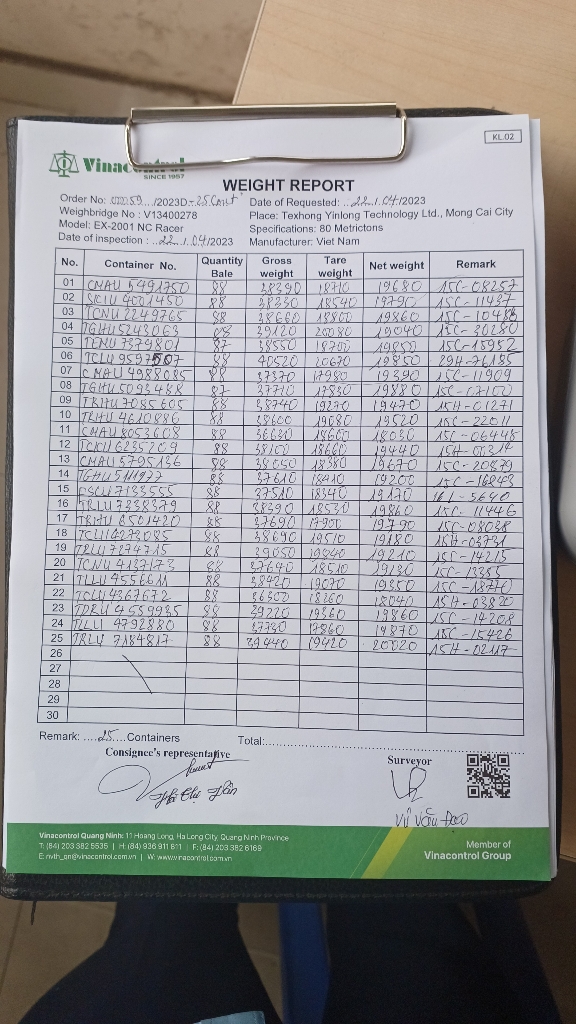 KL.02
Vinacontrol
SINCE 1957
WEIGHT REPORT
Order No: .../2023D - 25 Cont Date of Requested: ..22../.04/2023
Weighbridge No : V13400278 Place: Texhong Yinlong Technology Ltd., Mong Cai City
Model: EX-2001 NC Racer Specifications: 80 Metrictons
Date of inspection : ..22../.04/2023 Manufacturer: Viet Nam
No. Container No. Quantity Bale Gross weight Tare weight Net weight Remark
01 CMAU 5491750 88 38390 18710 19680 15C-08257
02 88 38330 18540 19790 15C-11437
03 TCNU 2249765 88 38660 18800 19860 15C-10488
04 TGHU 5243063 88 39120 20080 19040 15C-30280
05 TEMU 7379801 87 38550 18700 19850 15C-15952
06 TCLU 9597507 88 40520 20670 19850 29H-76155
07 CMAU 4988085 88 37370 17980 19390 15C-11909
08 TGHU 5093488 87 37710 17830 19880 15C-07100
09 TRHU 7085605 88 38740 19270 19470 15H-01271
10 TRHU 4610886 88 38600 19080 19520 15C-22011
11 CMAU 8053608 88 36630 18600 18030 15C-06448
12 88 38100 18660 19440
13 CMAU 5795136 88 38050 18380 19670 15C-20879
14 88 37610 18410 19200 15C-16843
15 88 37510 18340 19170
16 TRLU 7338379 88 38390 18530 19860 15C-11446
17 TRHU 6501420 88 37690 17900 19790 15C-08038
18 88 38690 19510 19180 15H-03731
19 TRLU 7274715 88 39050 19840 19210 15C-14215
20 TCNU 4137173 88 37640 18510 19130 15C-13385
21 88 38420 19070 19350 15C-18770
22 TCLU 4367672 88 36300 18260 18040 15H-03820
23 TDRU 4559935 88 39220 19360 19860 15C-14208
24 TLLU 4792880 88 37730 17860 19870 15C-15426
25 TRLU 7184817 88 39440 19420 20020 15H-02117
26
27
28
29
30
Remark: ....25....Containers Total:
Consignee's representative Surveyor
Vũ Văn Đạo
Vinacontrol Quang Ninh: 11 Hoang Long, Ha Long City, Quang Ninh Province
T: (84) 203 382 5535 | H: (84) 936 911 811 | F: (84) 203 382 6169
E: nvth_qn@vinacontrol.com.vn | W: www.vinacontrol.com.vn
Member of
Vinacontrol Group